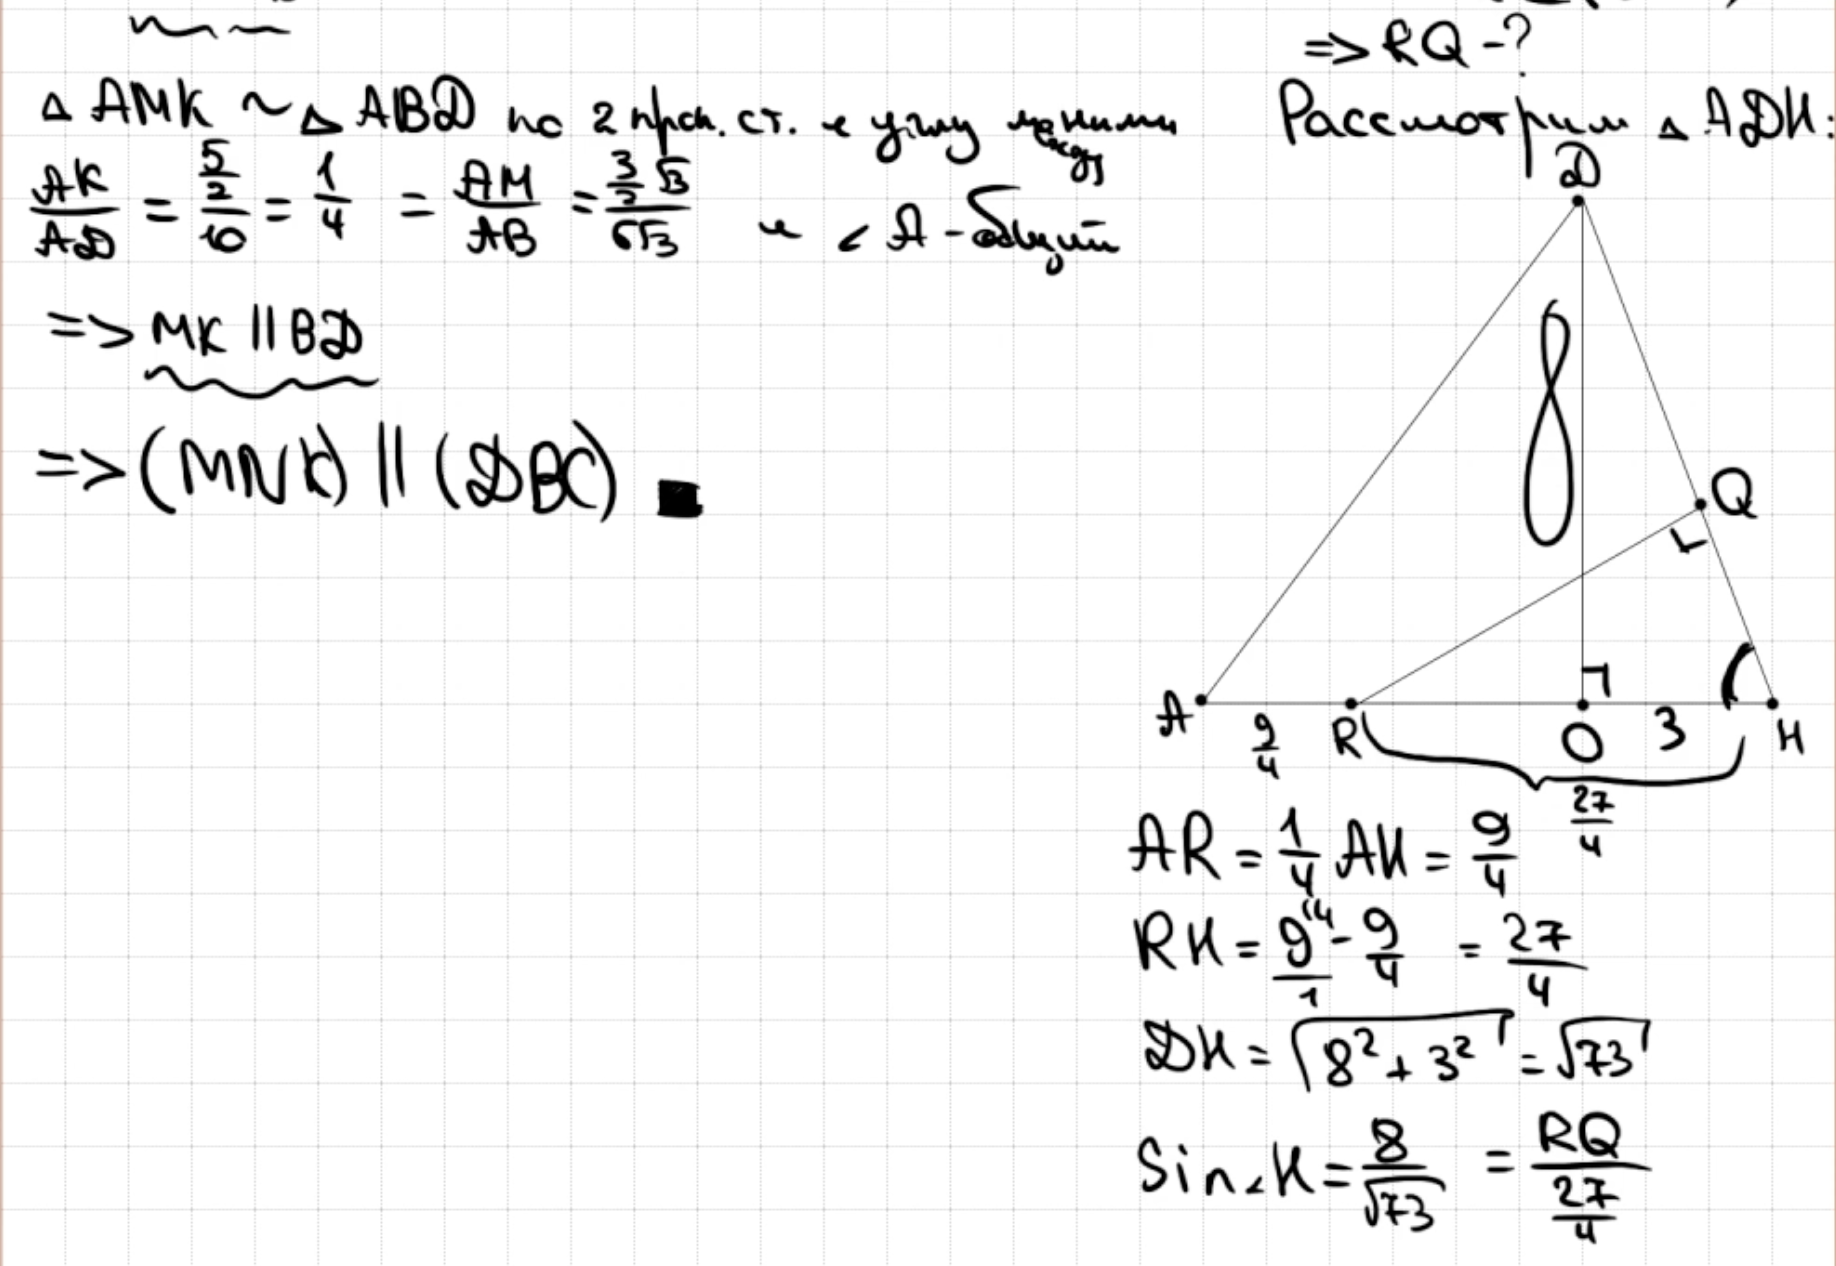 △ AMK ~ △ ABD по 2 проп. ст. и углу между ними
AK/AD = (5/2)/10 = 1/4 = AM/AB = (3/2 √3)/(6√3) и ∠ A - общий
=> MK || BD
=> (MNK) || (DBC) ■
=> RQ - ?
Рассмотрим △ ADH:
D
8
Q
A
9/4
R
O
3
H
27/4
AR = 1/4 AH = 9/4
RH = 9/1 ^(4 - 9/4 = 27/4
DH = √(8² + 3²) = √73
Sin∠H = 8/√73 = RQ/(27/4)